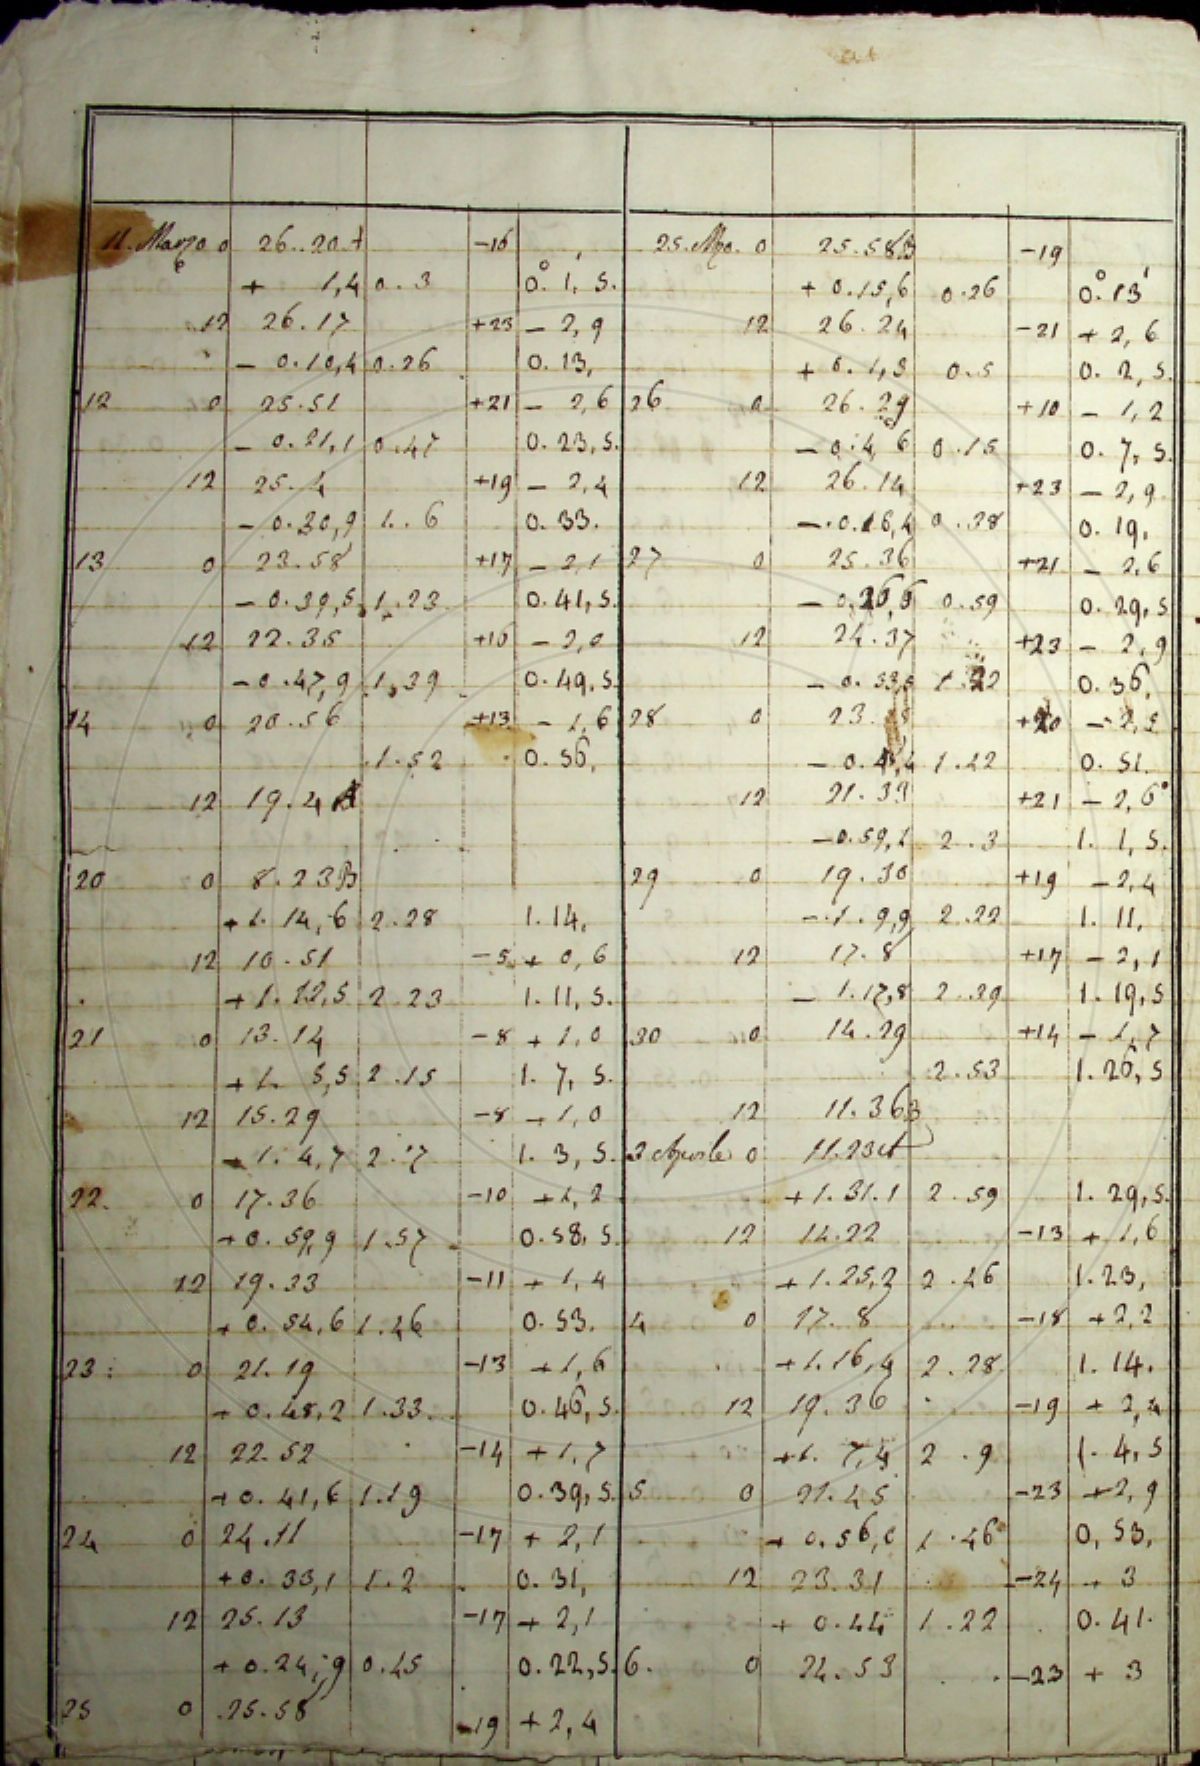 11. Marzo 0 26..20 A -16
+ 1,4 0.3 0.° 1, 5.
12 26.17 +23 - 2,9
- 0.10,4 0.26 0.13,
12 0 25.51 +21 - 2,6
- 0.21,1 0.47 0.23,5.
12 25.4 +19 - 2,4
- 0.30,9 1.6 0.33.
13 0 23.58 +17 - 2,1
- 0.39,5 1.23 0.41,5.
12 22.35 +16 - 2,0
- 0.47,9 1.39 0.49,5
14 0 20.56 +13 - 1,6
1.52 0.56,
12 19.4 A
20 0 8.23 B
+1.14,6 2.28 1.14,
12 10.51 -5 + 0,6
+1.12,5 2.23 1.11,5.
21 0 13.14 -8 + 1,0
+1. 5,5 2.15 1.7,5.
12 15.29 -8 + 1,0
+1.4,7 2.7 1.3,5.
22. 0 17.36 -10 +1,2
+0.59,9 1.57 0.58,5.
12 19.33 -11 + 1,4
+0.54,6 1.46 0.53.
23: 0 21.19 -13 +1,6
+0.48,2 1.33. 0.46,5.
12 22.52 -14 +1,7
+0.41,6 1.19 0.39,5.
24 0 24.11 -17 + 2,1
+0.33,1 1.2 0.31,
12 25.13 -17 + 2,1
+0.24,9 0.45 0.22,5.
25 0 25.58 -19 + 2,4
25. Mzo. 0 25.58 B -19
+ 0.15,6 0.26 0.° 13'
12 26.24 -21 + 2,6
+ 0.1,3 0.5 0.2,5.
26 0 26.29 +10 - 1,2
- 0.4 6 0.15 0.7,5.
12 26.14 +23 - 2,9
- 0.16,4 0.38 0.19,
27 0 25.36 +21 - 2,6
- 0,26,6 0.59 0.29,5
12 24.37 +23 - 2,9
- 0.33,5 1.22 0.36,
28 0 23. +20 - 2,5
- 0. 1.42 0.51.
12 21.33 +21 - 2,6
- 0.59,1 2.3 1.1,5.
29 0 19.30 +19 - 2,4
- 1.9,9 2.22 1.11,
12 17.8 +17 - 2,1
- 1.17,8 2.39 1.19,5
30 0 14.29 +14 - 1,7
2.53 1.26,5
12 11.36 B
3 Aprile 0 11.23 A
+1.31.1 2.59 1.29,5.
12 14.22 -13 + 1,6
+1.25,2 2.46 1.23,
4 0 17.8 -18 +2,2
+1.16,4 2.28 1.14.
12 19.36 -19 + 2,4
+1. 7,4 2.9 1.4,5
5. 0 21.45 -23 +2,9
+ 0.56,0 1.46 0,53,
12 23.31 -24 + 3
+ 0.44 1.22 0.41.
6. 0 24.53 -23 + 3